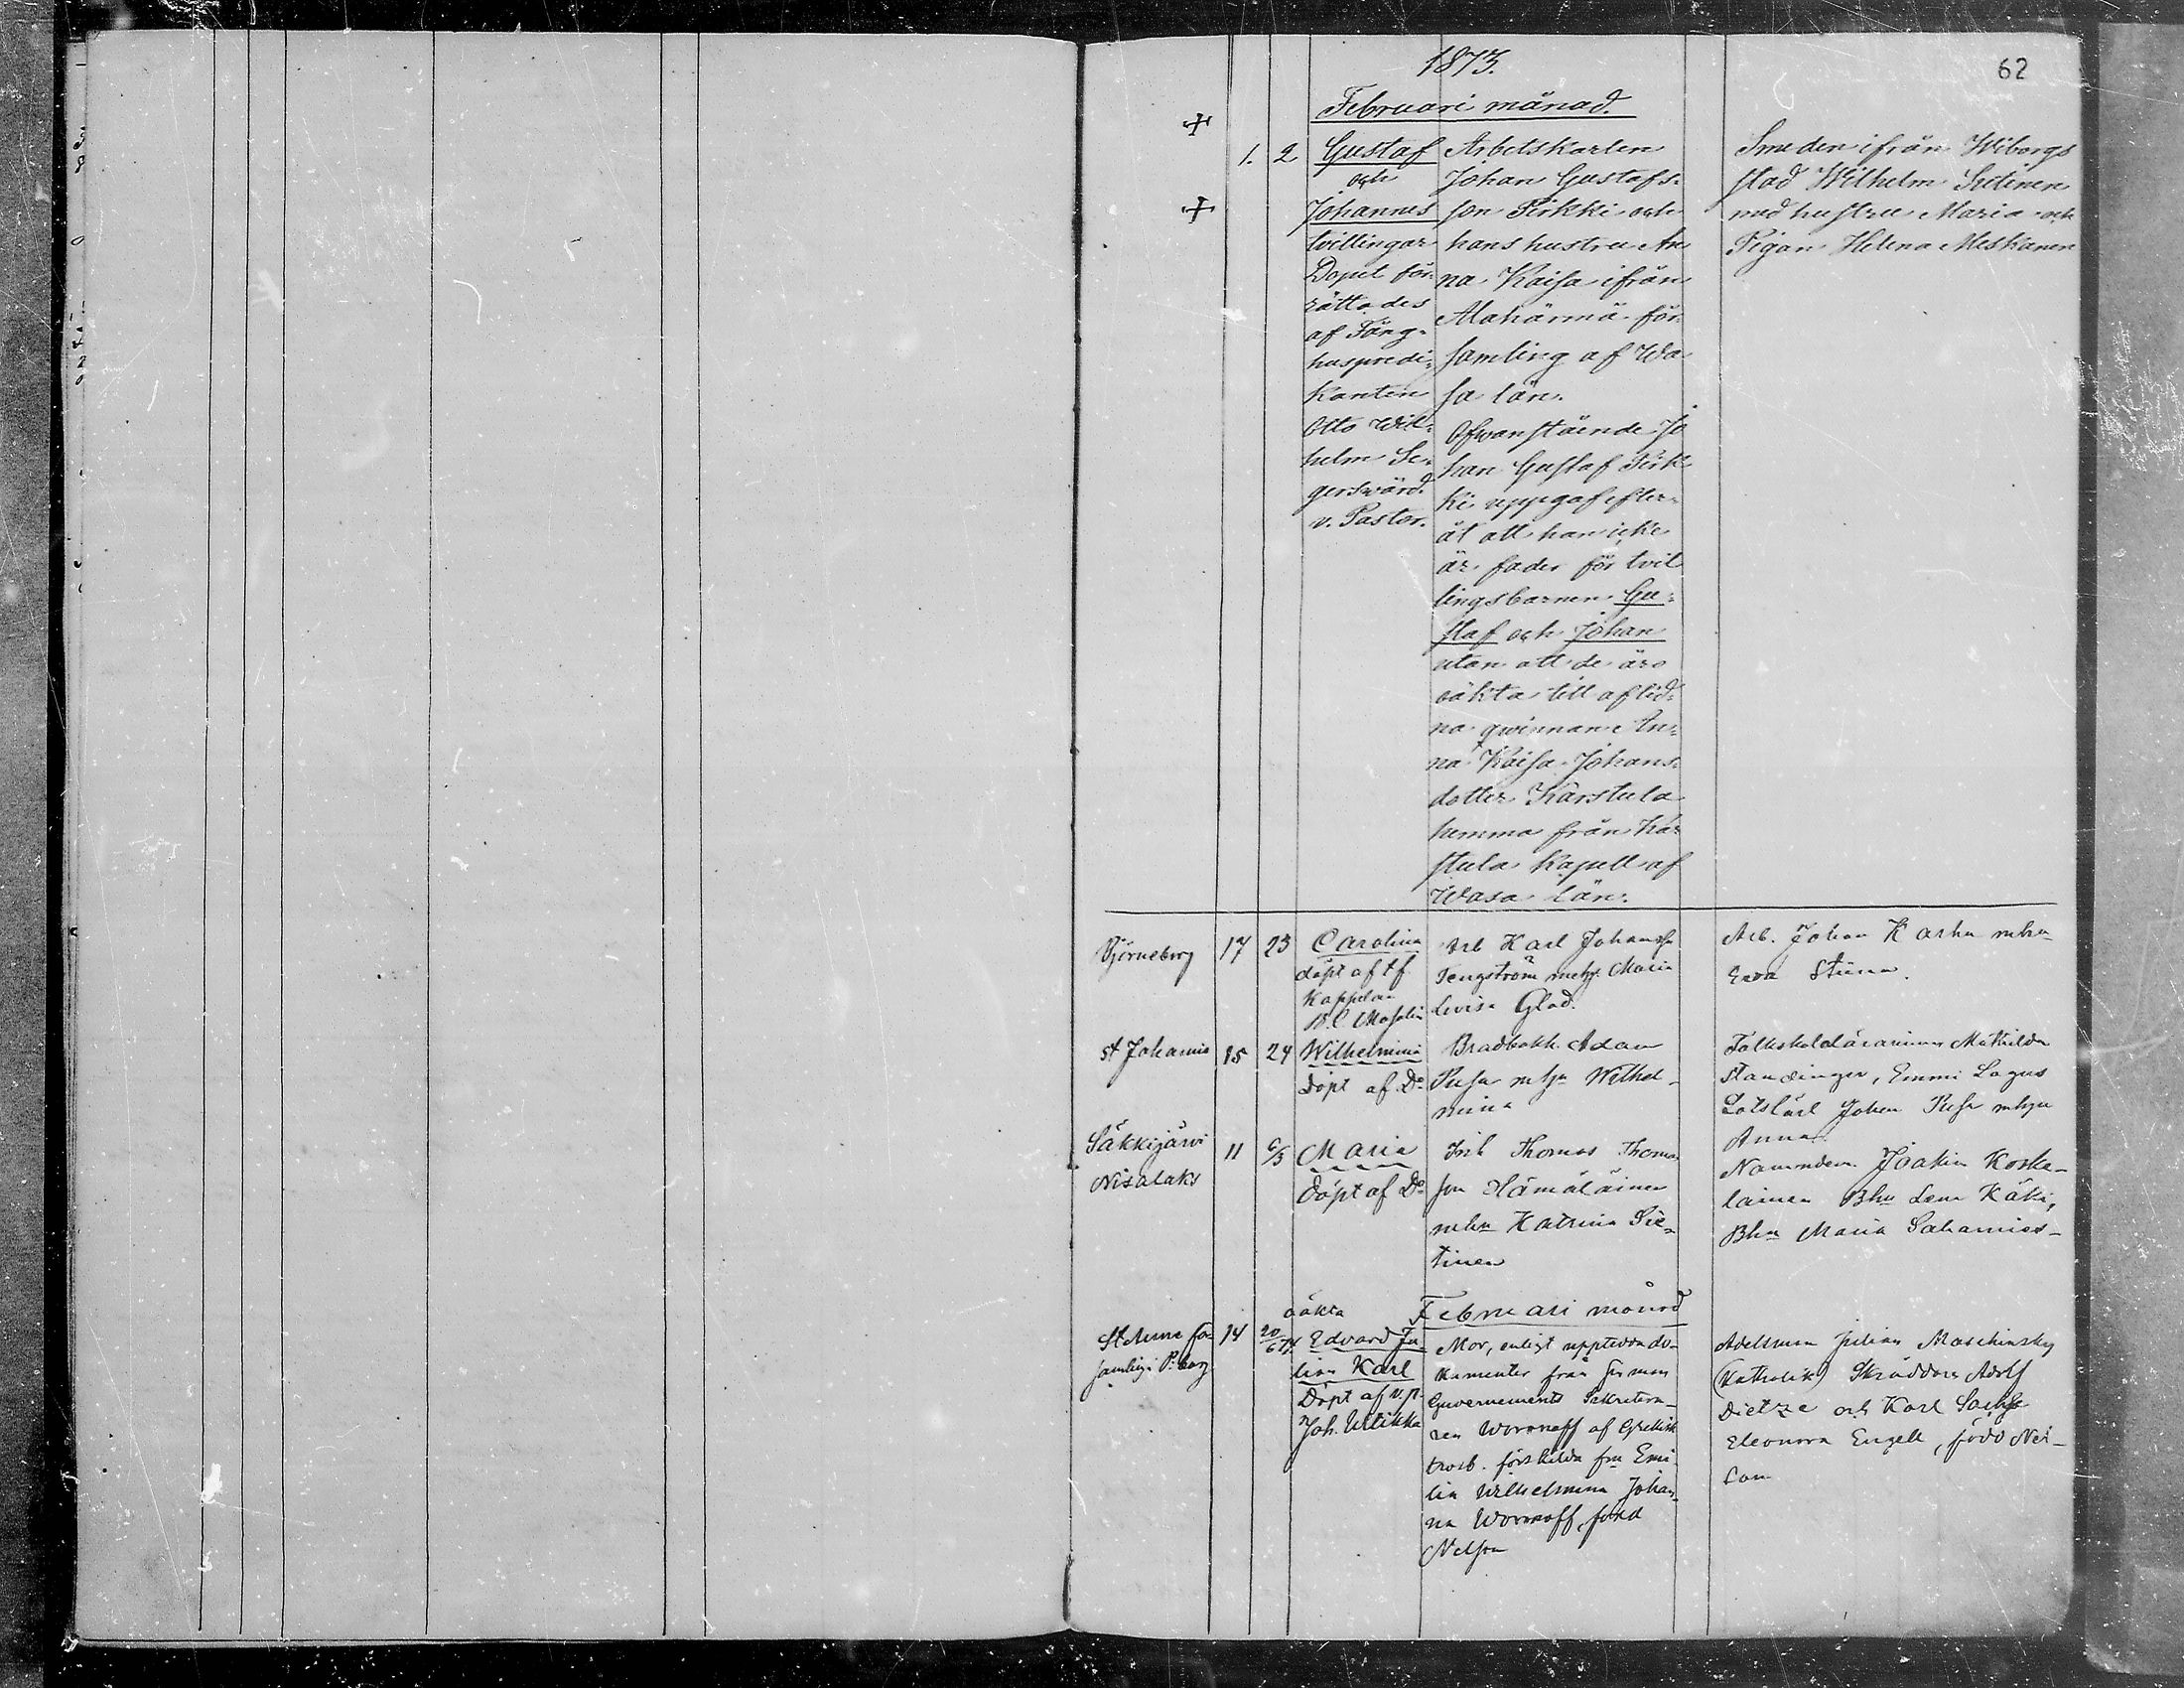 62
1873.
Februari månad.
+
+
1. 2
Gustaf
och
Johannes
tvillingar
Dopet för-
rättades
af Fång-
huspredi-
kanten
Otto Wil-
helm Se-
gerswärd.
v. Pastor.
Arbetskarlen
Johan Gustafs-
son Pirkki och
hans hustru An
na Kaisa ifrån
Alahärmä för-
samling af Wa
sa län.
Ofwanstående Jo
han Gustaf Pirk
ki uppgaf efter-
åt att han icke
är fader för tvil
lingsbarnen Gu-
staf och Johan
utan att de äro
oäkta till aflid-
na qwinnan An-
na Kaisa Johans-
dotter Karstula
hemma från Kar
stula Kapell af
Wasa län.
Smeden ifrån Wiborgs
stad Wilhelm
med hustru Maria och
Pigan Helena Meskanen
Björneborg 17 23
Carolina
döpt af tf.
Kappelan
Arb Karl Johansson
Maria
Lovisa Glad.
Arb. Johan Karhu mhu
Eva Stiina.
St Johannis 15 24
Wilhelmina
Döpt af Do
Adam
Pusa mhu Wilhel-
mina
Folkskolelärarinnan Mathilda
Standinger, Emmi Lagus
Johan Pusa mhu
Anna
Säkkijärvi
Nisalaks
11 6/3
Maria
Döpt af Do
Inh Thomas Thomas
son Hämäläinen
mhu Katrina Sie-
tinen
Nämndem. Joakim Koske-
lainen Bhu Lena Käki,
Bhu Maria
Februari månad
oäkta
St Anna för
samling i P:borg
14 20/6 74
Edvard Ju
lian Karl
Döpt af v.p.
Joh. Utikka
Mor, enligt uppvisade do-
kumenter från sin man
Guvernements Sekretera-
ren Woronoff af Grekisk
trosb. förskilda fru Emi
lia Wilhelmina Johan-
na Woronoff, född
Nelson
Adelsman Julian Maschinsky
(Katholik) Skräddare Adolf
Dietze och Karl Sachse
Eleonora Engell, född Nel-
son